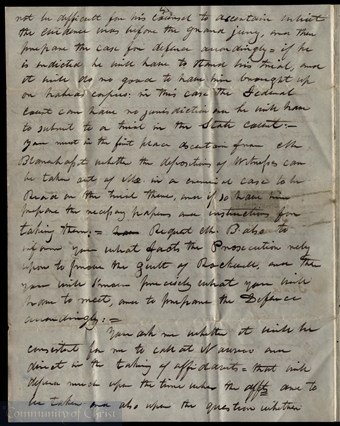 not be difficult for his Counsel to ascertain what
the evidence was before the grand jury, and then
prepare the case for defence accordingly = if he
is indicted he will have to stand his trial, and
it will do no good to have him brought up
on habeas corpus: in this case the Federal
Court can have no jurisdiction and he will have
to submit to a trial in the State Court: =
You must in the first place ascertain from Mr
whether the deposition of Witnesses can
be taken out of Mo in a criminal case to be
Read on the trial there, and if so have him
prepare the necessary papers and instruction for
taking them; = Request Mr. B also to
inform you what facts the Prosecution rely
upon to prove the guilt of Rockwell, and then
you will know precisely what you will
have to meet, and to prepare the Defence
accordingly: =
You ask me whether it will be
consistent for me to call at Nauvoo and
direct in the taking of affidavits = that will
depend much upon the time when the affts are to
be taken and also upon the question whether
Community of Christ